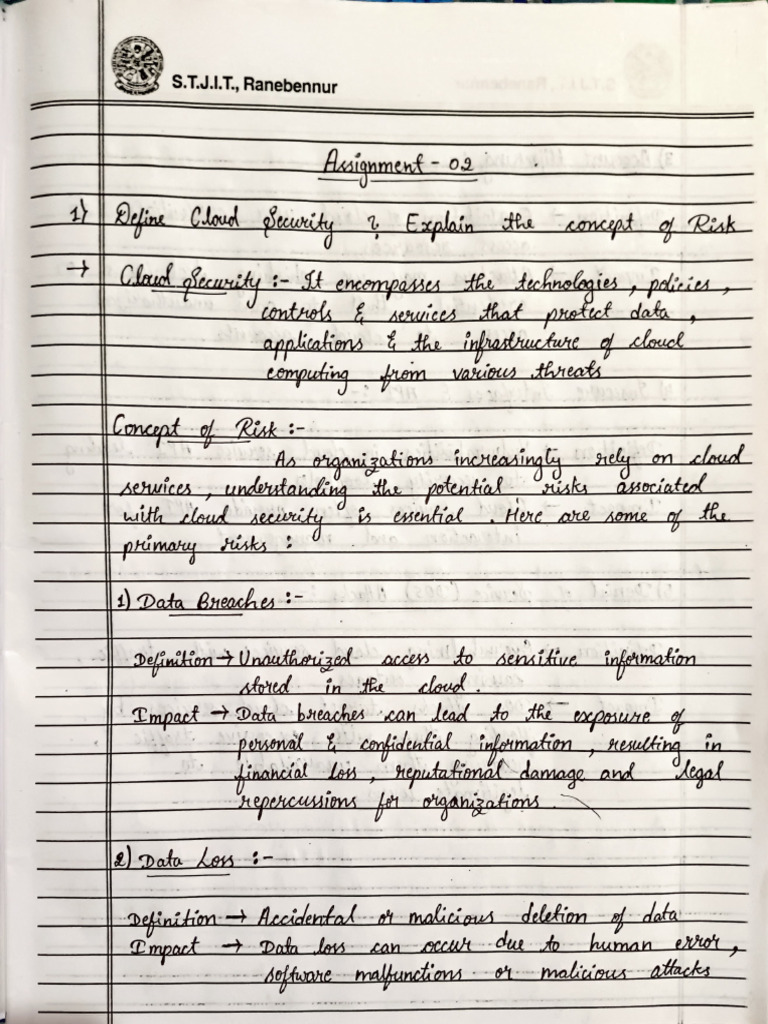 S.T.J.I.T., Ranebennur
Assignment - 02
1) Define Cloud Security ? Explain the concept of Risk
→ Cloud Security :- It encompasses the technologies, policies,
controls & services that protect data,
applications & the infrastructure of cloud
computing from various threats
Concept of Risk :-
As organizations increasingly rely on cloud
services, understanding the potential risks associated
with cloud security is essential. Here are some of the
primary risks :
1) Data Breaches :-
Definition → Unauthorized access to sensitive information
stored in the cloud.
Impact → Data breaches can lead to the exposure of
personal & confidential information, resulting in
financial loss, reputational damage and legal
repercussions for organizations.
2) Data Loss :-
Definition → Accidental or malicious deletion of data
Impact → Data loss can occur due to human error,
software malfunctions or malicious attacks